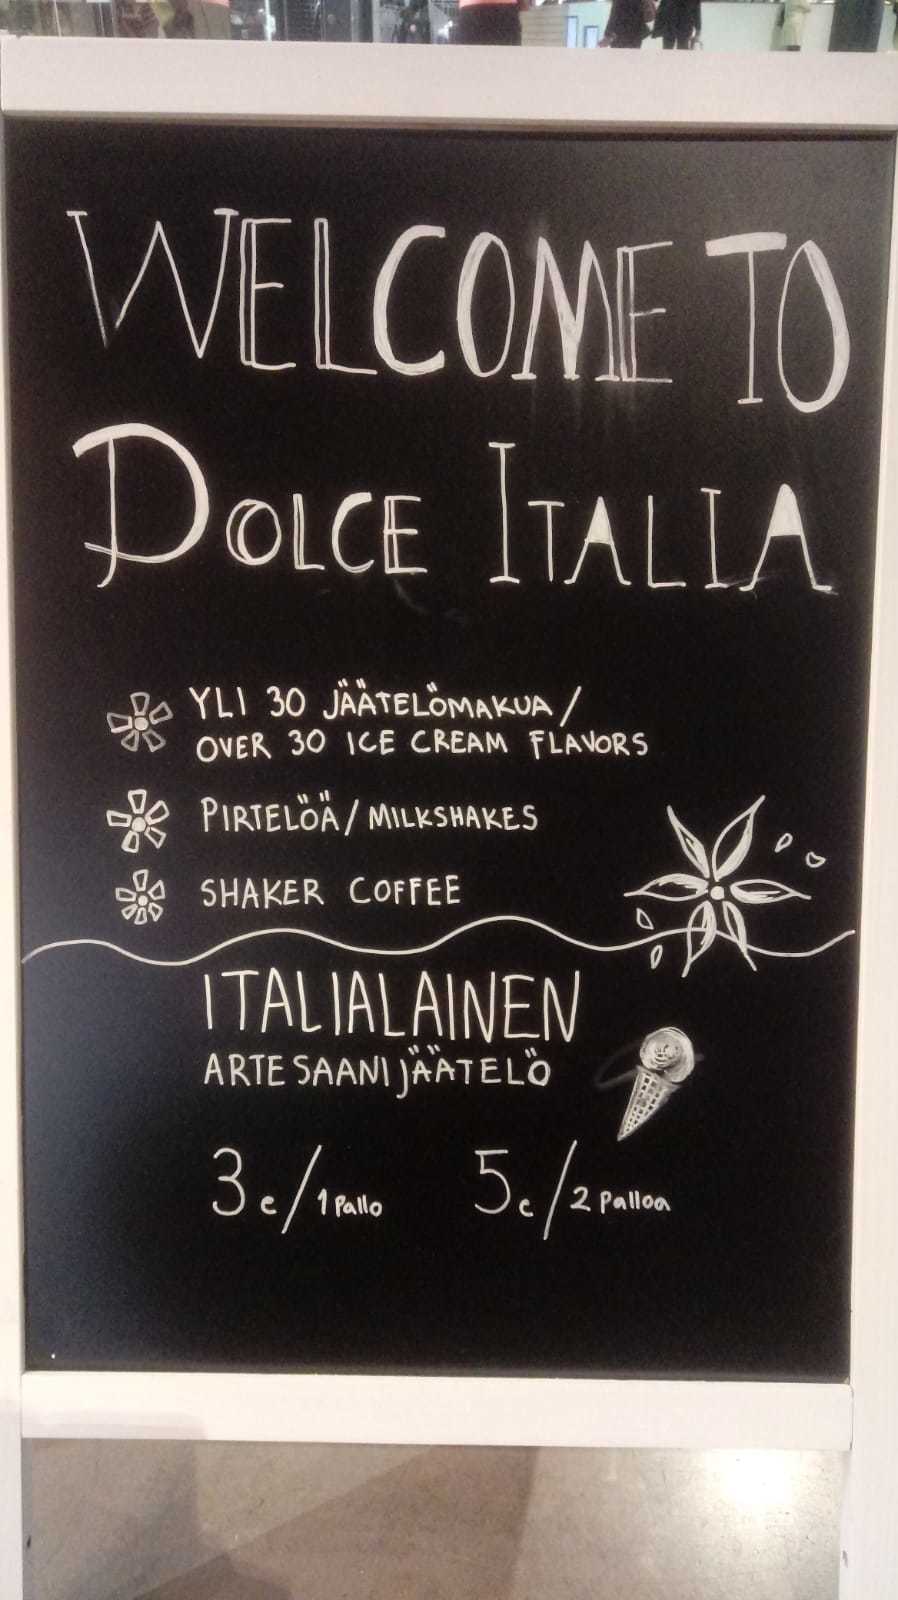 WELCOME TO
DOLCE ITALIA
YLI 30 JÄÄTELÖMAKUA/
OVER 30 ICE CREAM FLAVORS
PIRTELÖÄ/MILKSHAKES
SHAKER COFFEE
ITALIALAINEN
ARTESAANIJÄÄTELÖ
3e/1 Pallo 5e/2 Palloa